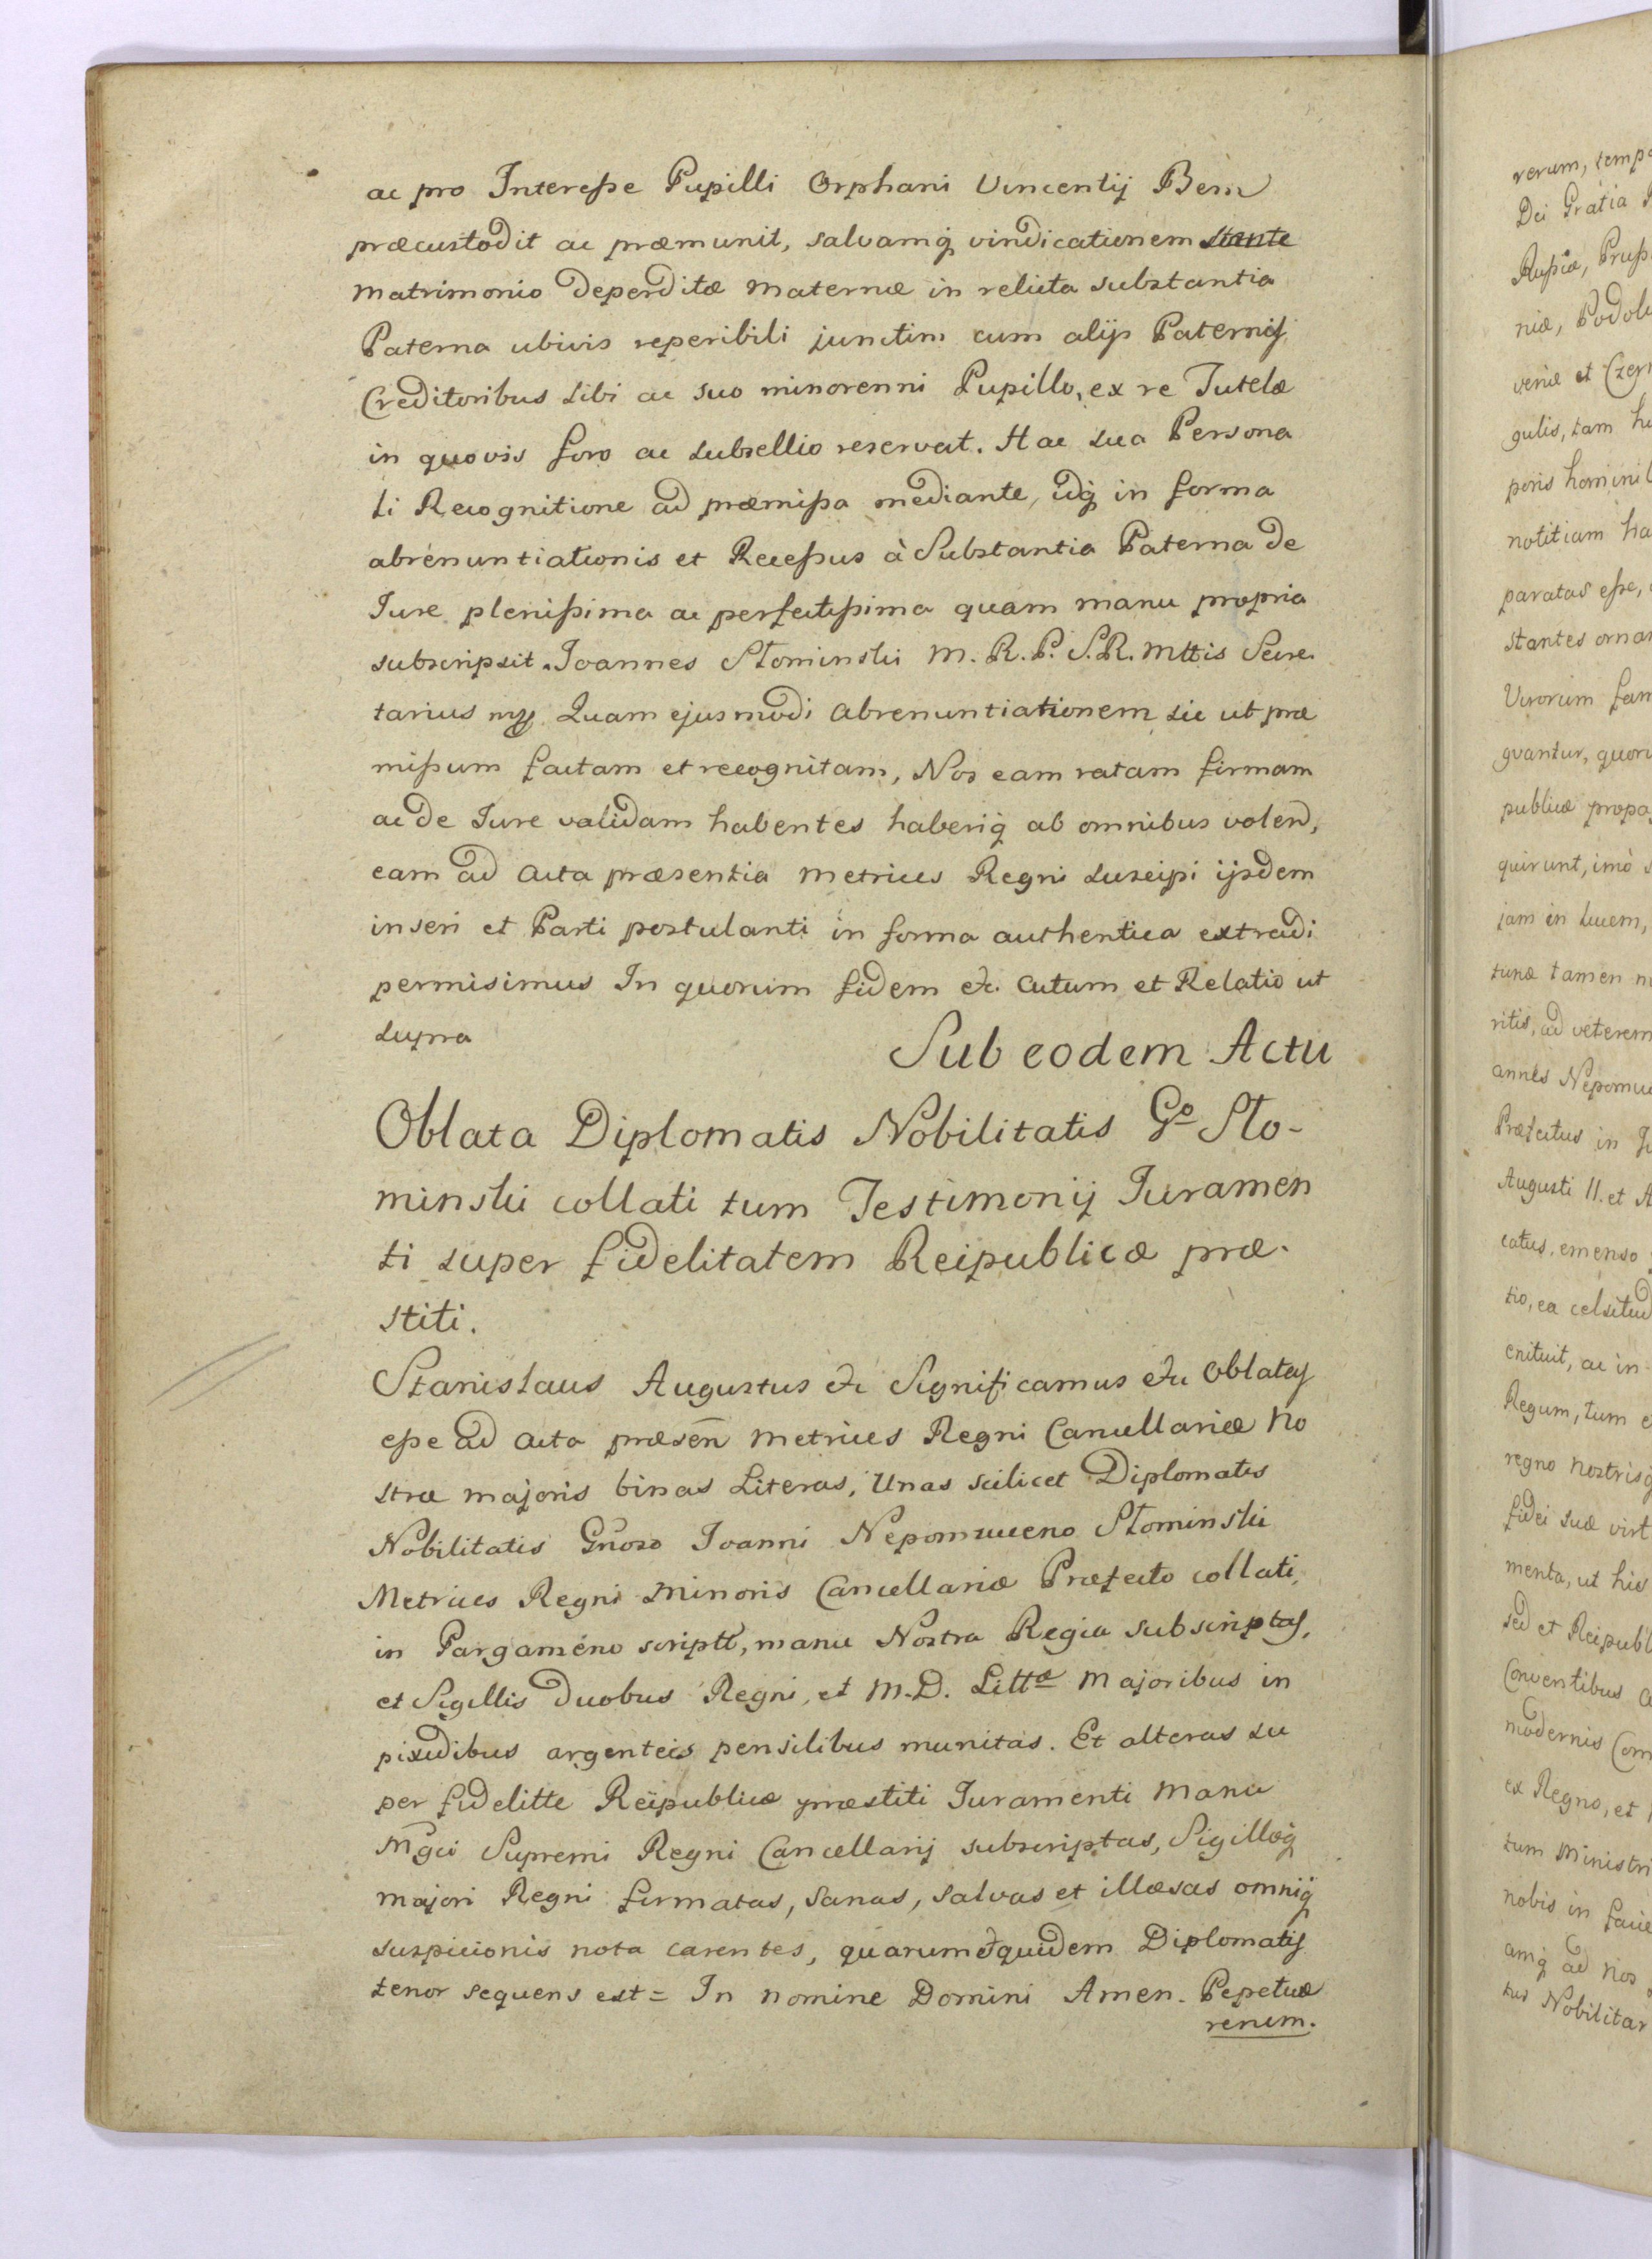 ac pro Interesse Pupilli Orphani Vincentij Bem
præcustodit ac præmunit, salvamq̀ vindicationem stante
matrimonio deperditæ maternæ in relicta substantia
Paterna ubivis reperibili junctim cum alijs Paternis
Creditoribus sibi ac suo minorenni Pupillo, ex re Tutelæ
in quovis foro ac subsellio reservat. Hac sua Persona
li Recognitione ad præmissa mediante, idq̀ in forma
abrenuntiationis et Recessus à Substantia Paterna de
Jure plenissima ac perfectissima quam manu propria
subscripsit. Joannes Słominski M. R. P. S. R. Mttis Secre
tarius mp. Quam ejusmodi abrenuntiationem sic ut præ
missum factam et recognitam, Nos eam ratam firmam
ac de Jure validam habentes haberiq̀ ab omnibus volend,
eam ad acta præsentia metrices Regni suscipi ijsdem
inseri et Parti postulanti in forma authentica extradi
permisimus In quorum fidem &c. actum et Relatio ut
supra
Sub eodem Actu
Oblata Diplomatis Nobilitatis Go Sło-
minski collati tum Testimonij Juramen
ti super fidelitatem Reipublicæ præ-
stiti.
Stanislaus Augustus &c Significamus &c oblatas
esse ad acta præsen̄ metrices Regni Cancellariæ No
stræ majoris binas Literas, Unas scilicet Diplomatis
Nobilitatis Gnoso Joanni Nepomuceno Słominski
Metrices Regni minoris Cancellariæ Præfecto collati,
in Pargaméno scriptt, manu Nostra Regia subscriptas,
et Sigillis duobus Regni, et M. D. Littæ majoribus in
pixidibus argenteis pensilibus munitas. Et alteras su
per fidelitte Reipublicæ præstiti Juramenti manu
Mgci Supremi Regni Cancellarij subscriptas, Sigilloq̀
majori Regni firmatas, sanas, salvas et illæsas omniq̀
suspicionis nota carentes, quarum quidem Diplomatis
tenor sequens est = In nomine Domini Amen. Pepetuæ
rerum.
rerum, temp
Dei Gratia
Russiæ, Pruss
niæ, Podol
veriæ et Czer
gulis, tam
poris homini
notitiam ha
paratas esse,
stantes orna
Virorum fam
guantur, quor
publicæ propa
quirunt, imò
jam in lucem,
tunæ tamen
ritis, ad veterem
annes Nepomu
Præfectus in
Augusti II. et
catus, emenso
tio, ea celsitud
enituit, ac in
Regum, tum
regno nostrisq̀
fidei suæ virt
menta, ut hic
sed et Reipubl
Conventibus
modernis Com
ex Regno, et
tum ministri
nobis in
amq̀ ad nos
tus Nobilitar